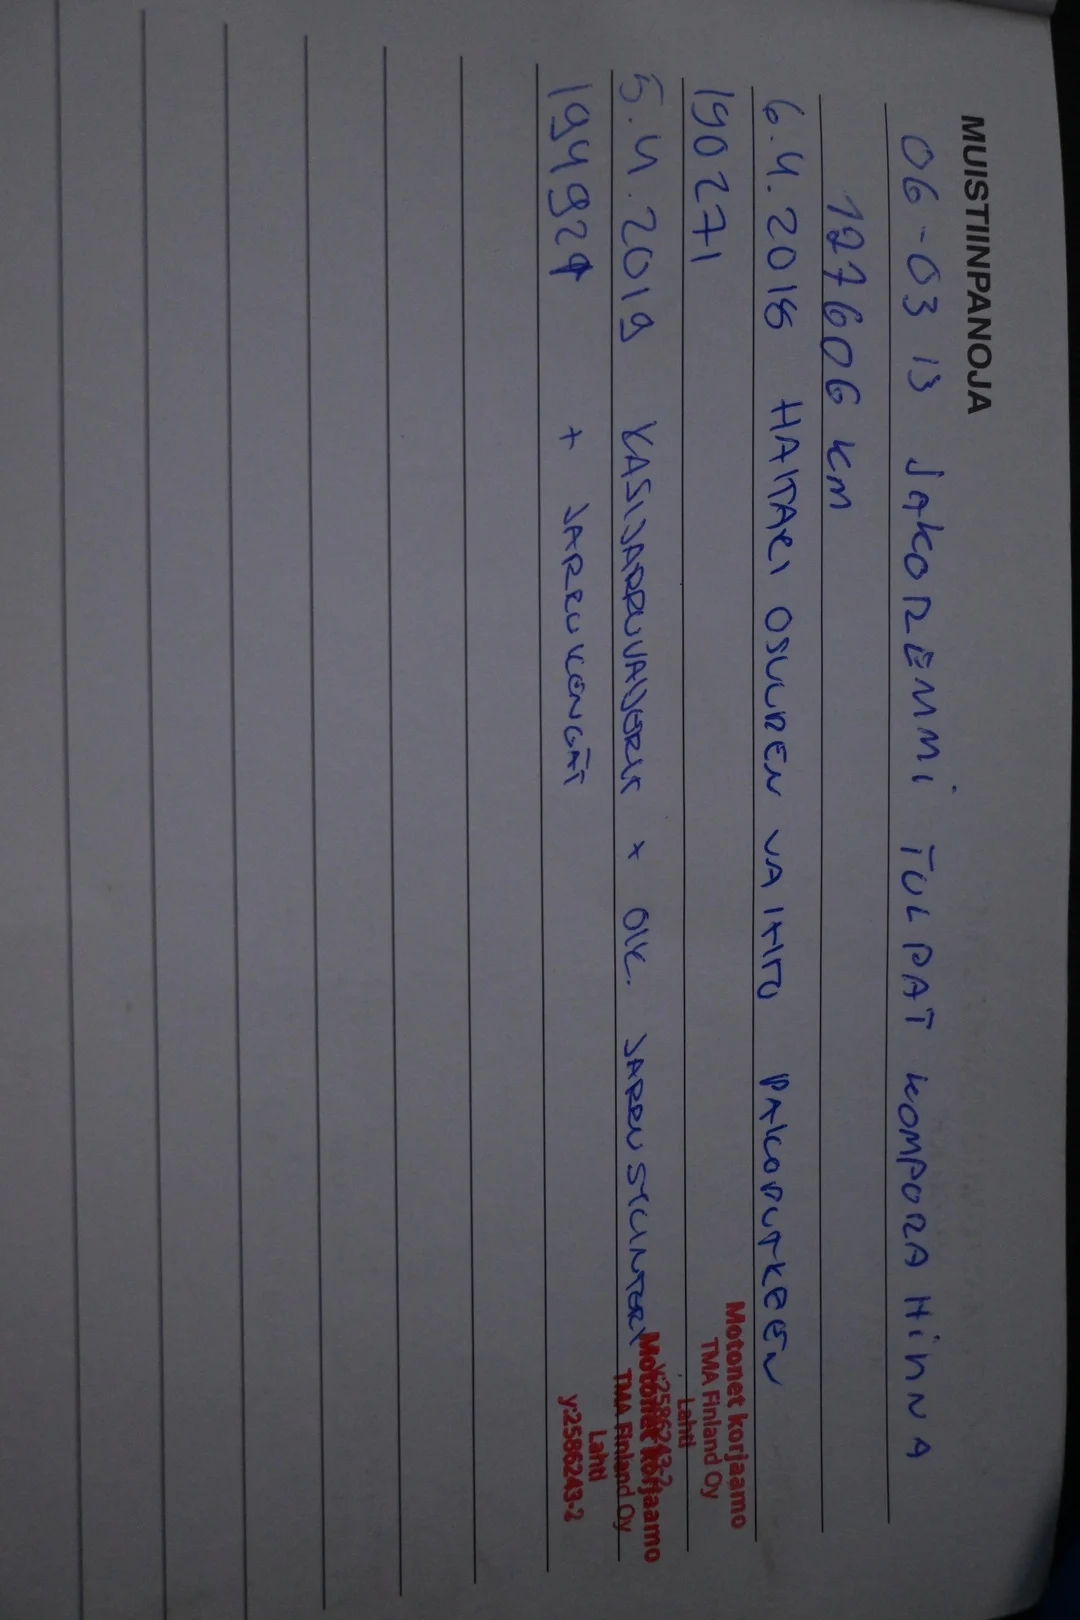 MUISTIINPANOJA
06-03 13 JAKOREMMI TULPAT KOMPORA HINNA
127606 KM
6.4.2018 HAITARI OSUUDEN VAIHTO PAKOPUTKEEN
190271
Motonet korjaamo
TMA Finland Oy
Lahti
y:2586243-2
5.4.2019 KÄSIJARRUVAIJERIT + OIK. JARRUSYLINTERI
Motonet korjaamo
TMA Finland Oy
194929 + JARRUKENGÄT
Lahti
y:2586243-2